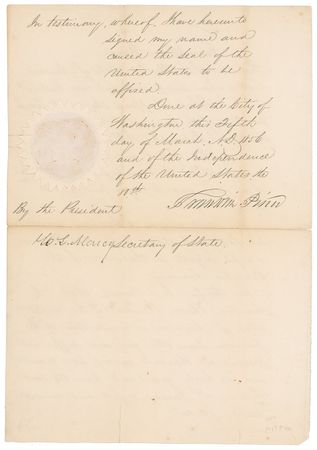 In testimony, whereof, I have hereunto
signed my name and
caused the seal of the
United States to be
affixed
Done at the City of
Washington this Fifth
day of March, A.D. 1856
and of the Independence
of the United States the
80th
Franklin Pierce
By the President
W. L. Marcy Secretary of State.